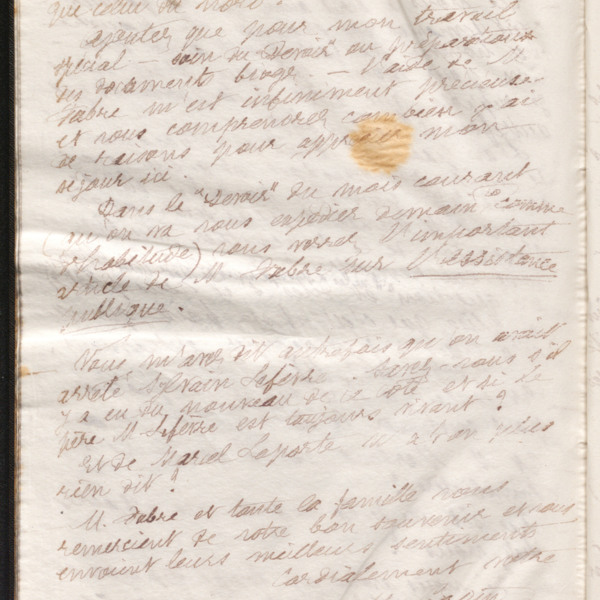 que celui du nord.
ajoutez que pour mon travail
spécial — soin du "Devoir" ou préparation
des documents — l'aide de M.
Fabre m'est infiniment précieuse
et vous comprenez combien j'ai
de raisons pour apprécier mon
séjour ici.
Dans le "Devoir" du mois courant
(qu'on va vous expédier demain comme
d'habitude) vous verrez l'important
article de M. Fabre sur l'Assistance
publique.
Vous m'avez dit autrefois qu'on avait
arrêté Sylvain Lefèvre. Savez-vous s'il
y a eu du nouveau de ce côté et si le
père M. Lefèvre est toujours vivant ?
Et de Marcel Laporte on a plus
rien dit ?
M. Fabre et toute la famille vous
remercient de votre bon souvenir et vous
envoient leurs meilleurs sentiments
Cordialement votre